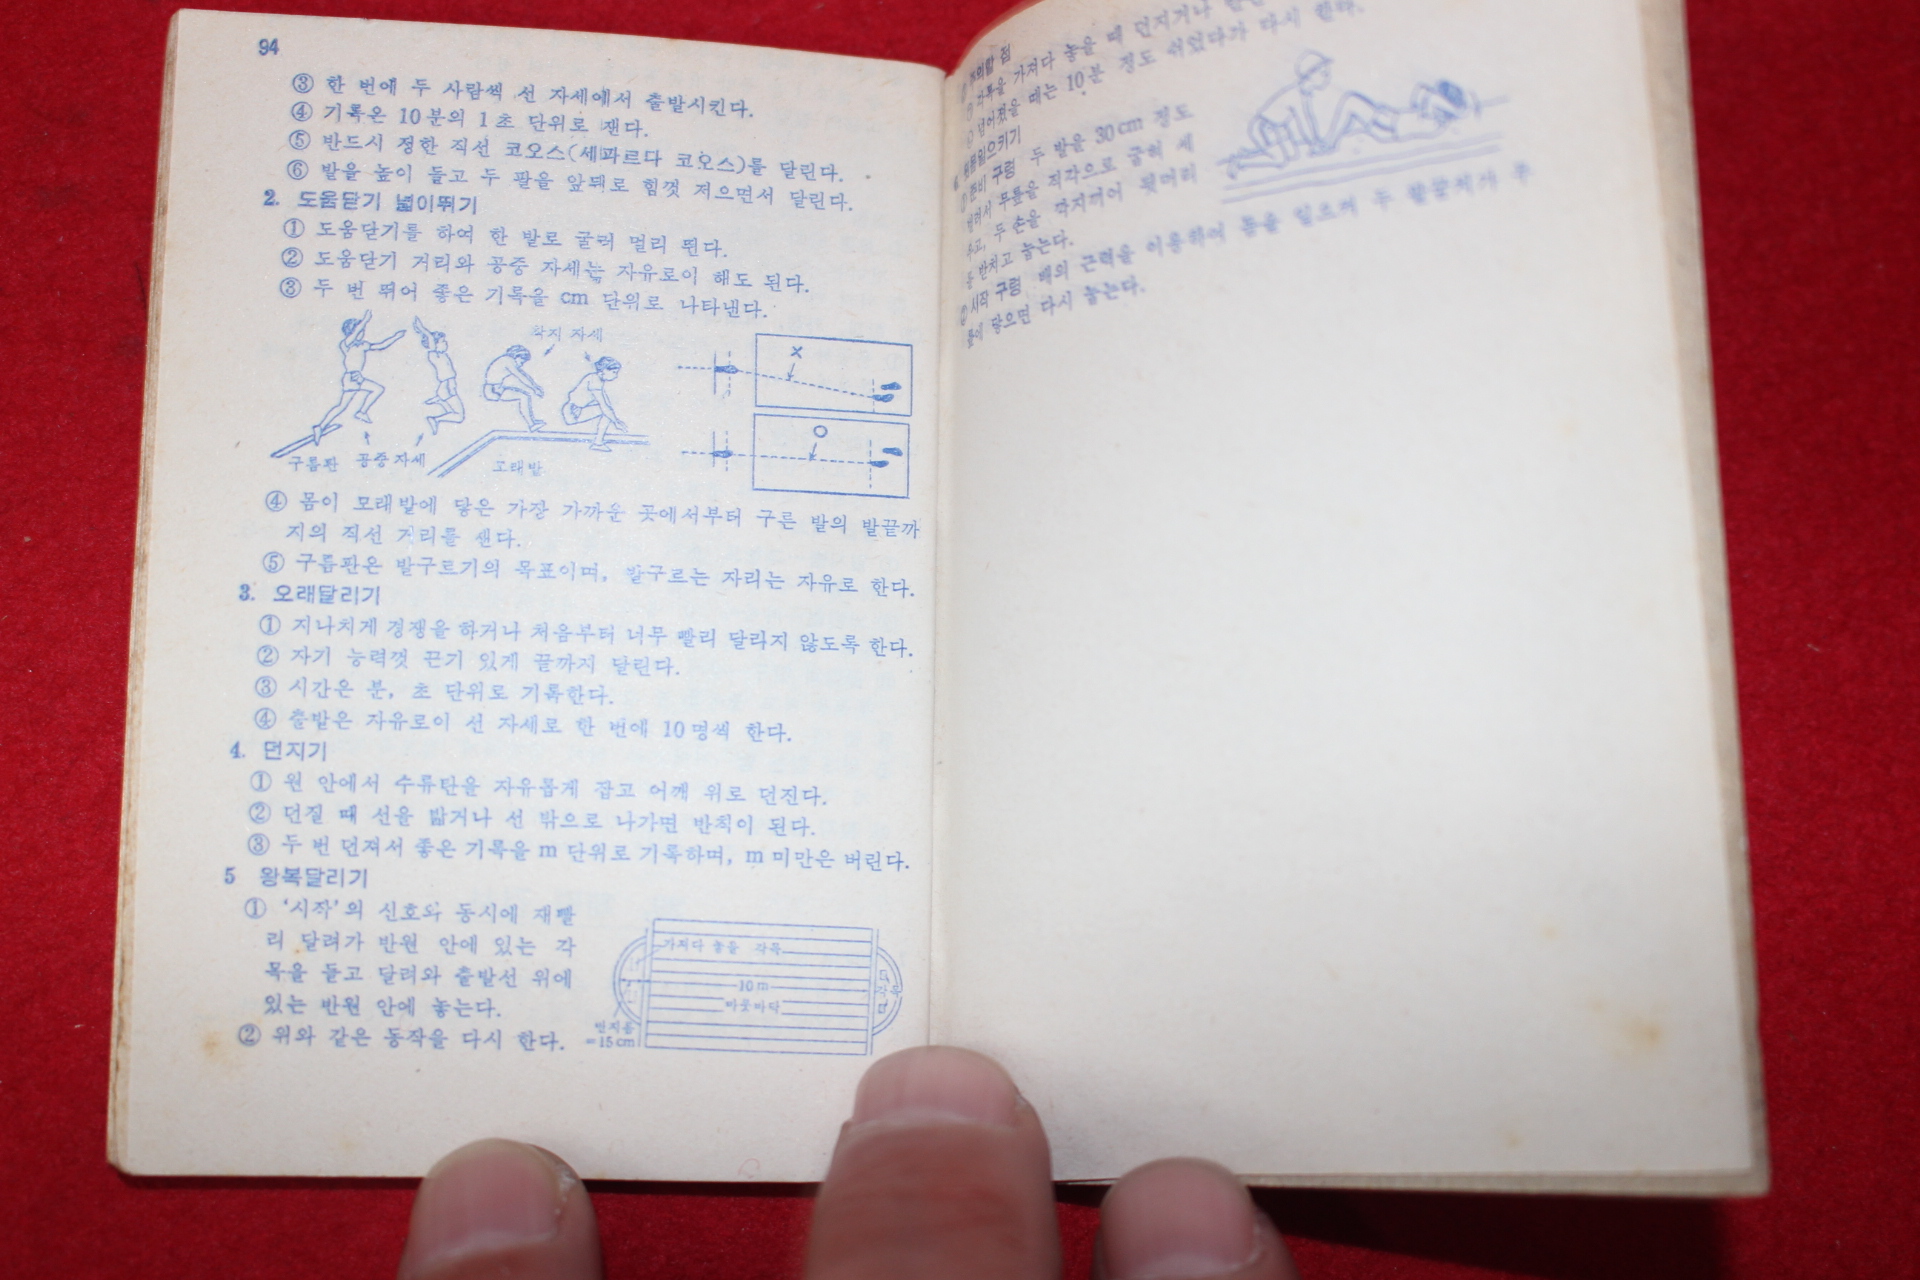 94
③ 한 번에 두 사람씩 선 자세에서 출발시킨다.
④ 기록은 10분의 1초 단위로 잰다.
⑤ 반드시 정한 직선 코오스(세파르다 코오스)를 달린다.
⑥ 발을 높이 들고 두 팔을 앞뒤로 힘껏 저으면서 달린다.
2. 도움닫기 넓이뛰기
① 도움닫기를 하여 한 발로 굴러 멀리 뛴다.
② 도움닫기 거리와 공중 자세는 자유로이 해도 된다.
③ 두 번 뛰어 좋은 기록을 cm 단위로 나타낸다.
착지 자세
×
○
구름판 공중 자세
모래밭
④ 몸이 모래밭에 닿은 가장 가까운 곳에서부터 구른 발의 발끝까
지의 직선 거리를 잰다.
⑤ 구름판은 발구르기의 목표이며, 발구르는 자리는 자유로 한다.
3. 오래달리기
① 지나치게 경쟁을 하거나 처음부터 너무 빨리 달리지 않도록 한다.
② 자기 능력껏 끈기 있게 끝까지 달린다.
③ 시간은 분, 초 단위로 기록한다.
④ 출발은 자유로이 선 자세로 한 번에 10명씩 한다.
4. 던지기
① 원 안에서 수류탄을 자유롭게 잡고 어깨 위로 던진다.
② 던질 때 선을 밟거나 선 밖으로 나가면 반칙이 된다.
③ 두 번 던져서 좋은 기록을 m 단위로 기록하며, m 미만은 버린다.
5 왕복달리기
① '시작'의 신호와 동시에 재빨
리 달려가 반원 안에 있는 각
목을 들고 달려와 출발선 위에
있는 반원 안에 놓는다.
② 위와 같은 동작을 다시 한다.
가져다 놓을 각목
10m
마룻바닥
반지름
=15cm
각목을 가져다 놓을 때 던지거나
넘어졌을 때는 10분 정도 쉬었다가 다시 한다.
윗몸일으키기
준비 구령 두 발을 30cm 정도
벌려서 무릎을 직각으로 굽혀 세
우고, 두 손을 깍지끼어 뒷머리
를 받치고 눕는다.
시작 구령 배의 근력을 이용하여 몸을 일으켜 두 팔꿈치가 무
릎에 닿으면 다시 눕는다.